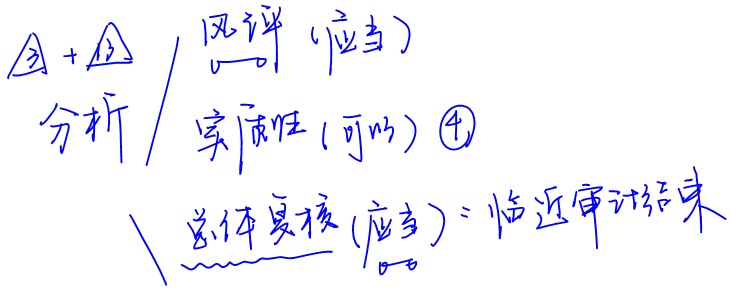 3 + 13
风评（应当）
分析
实质性（可以）④
总体复核（应当）：临近审计结束